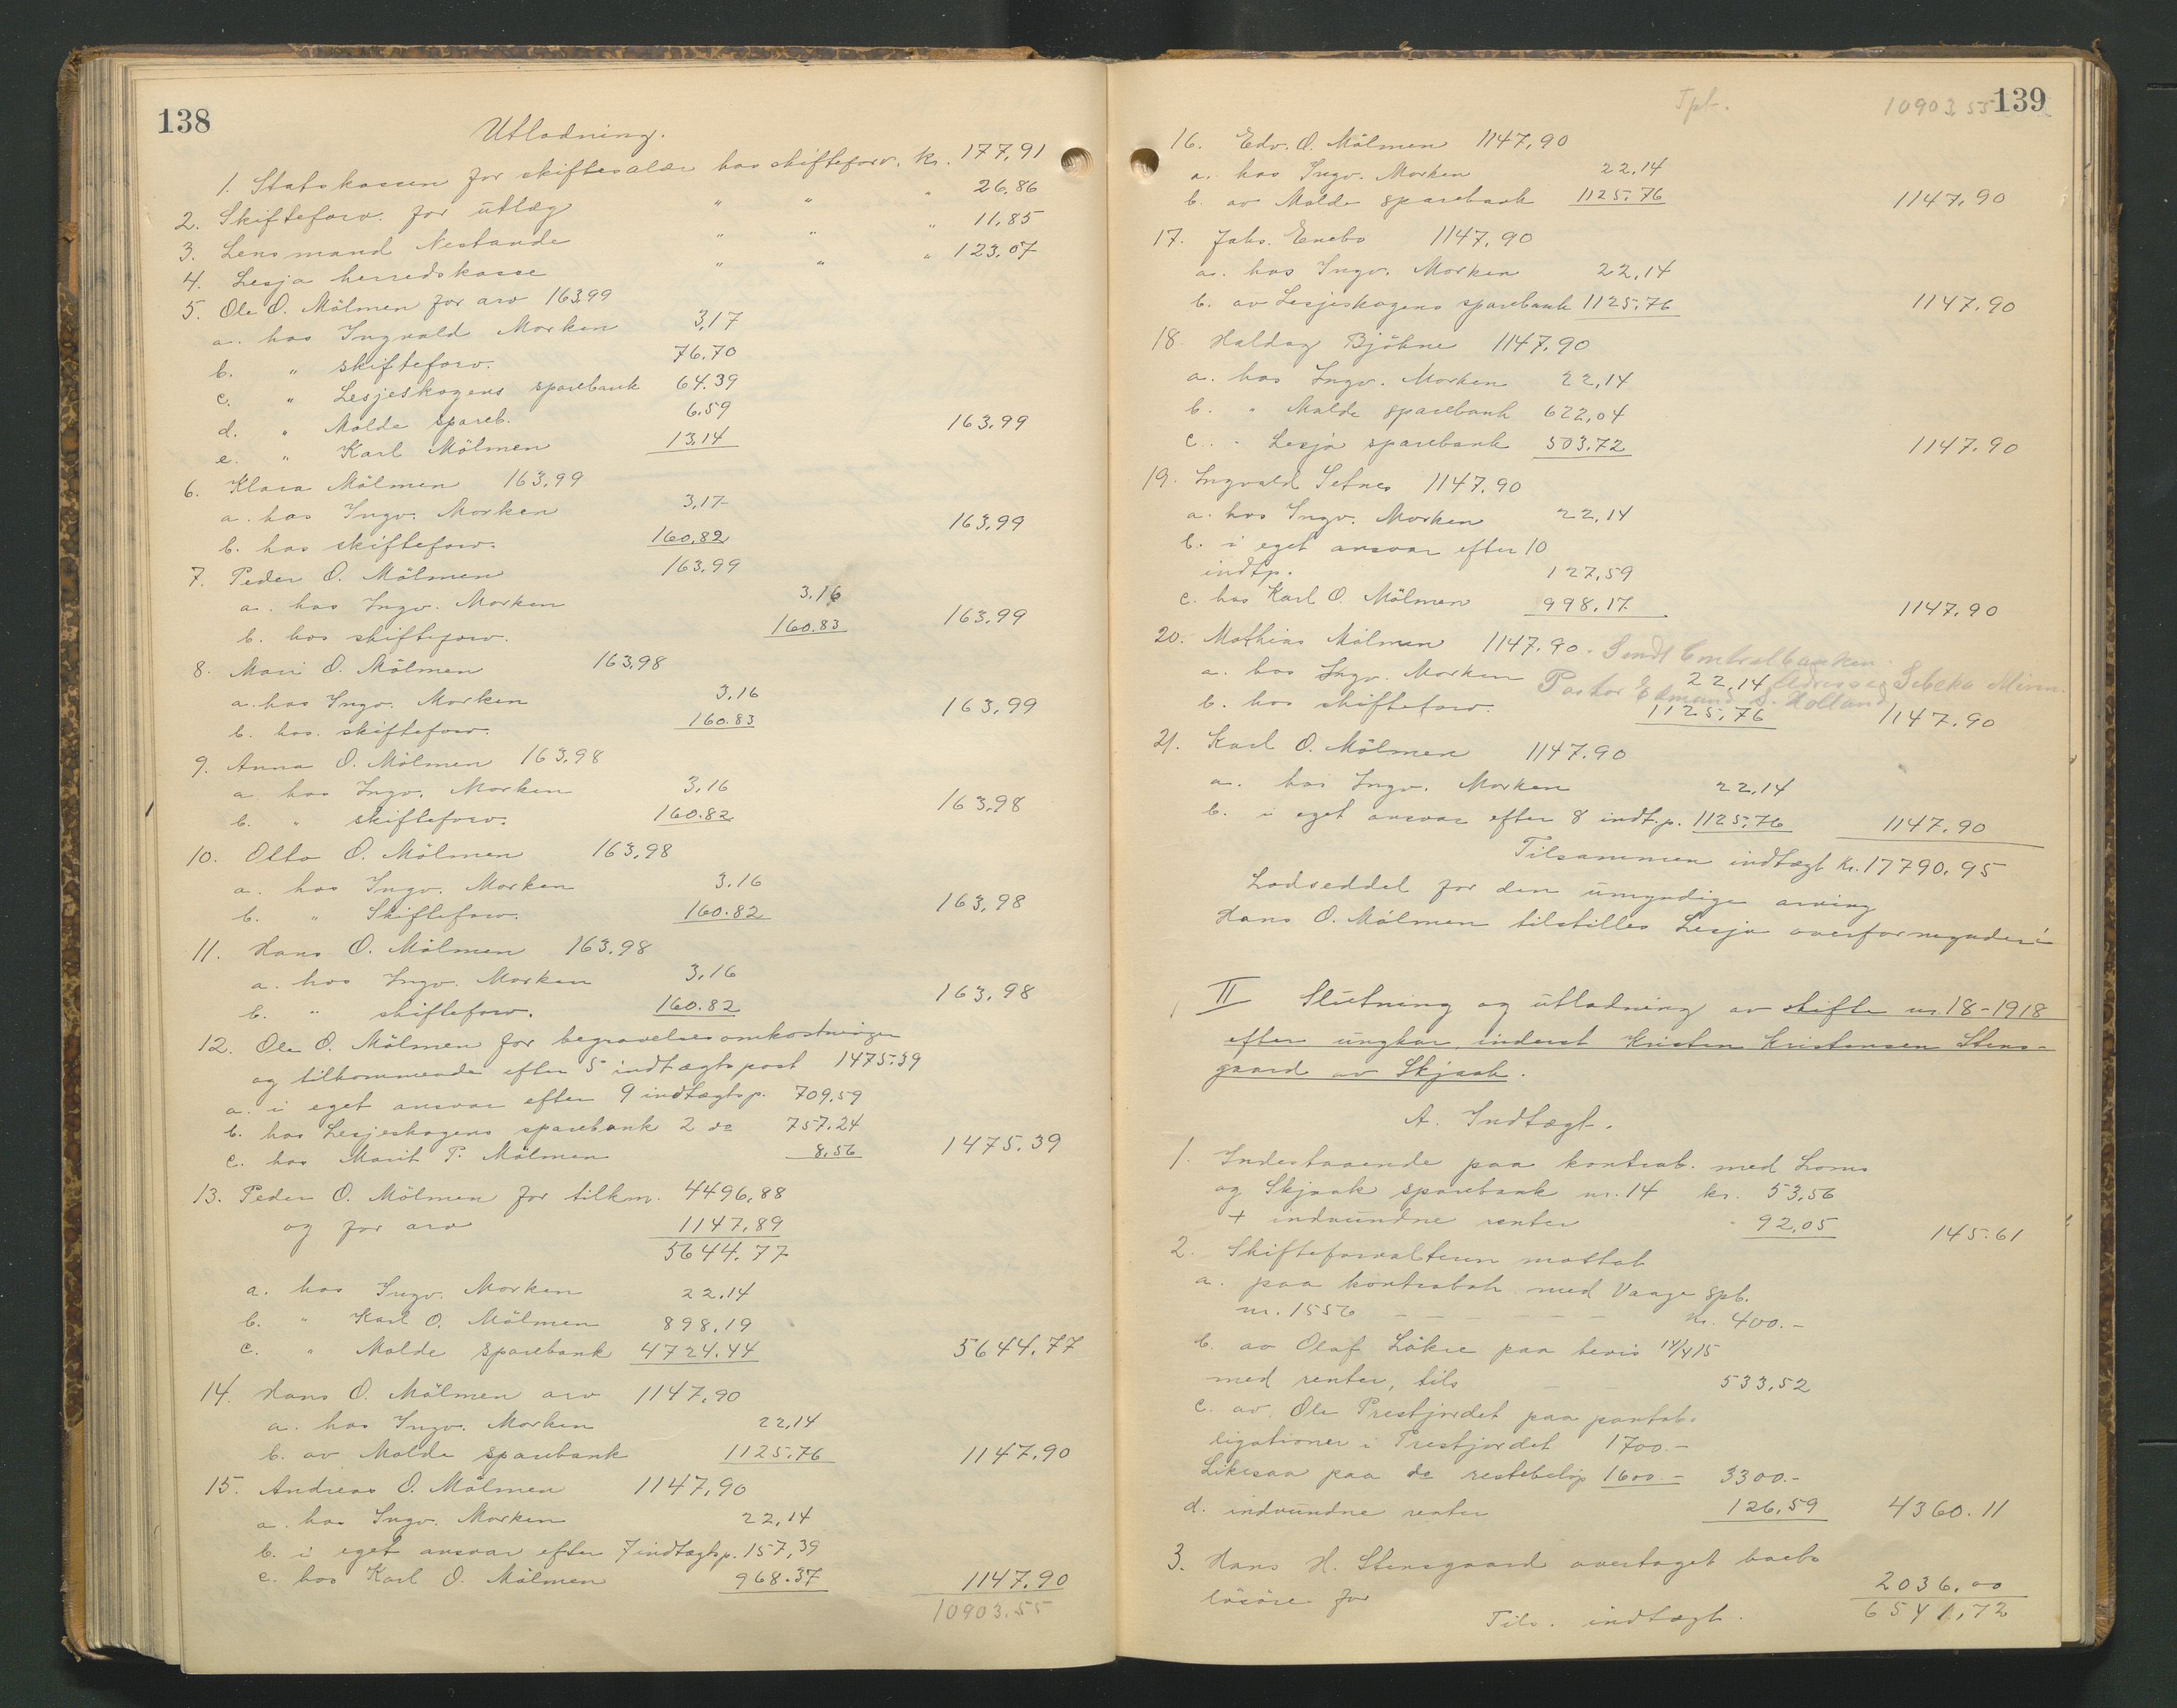 138
Utlodning.
1. Statskassen for skiftesalær hos skifteforv. kr. 177,91
2. Skifteforv. for utlæg " " " 26,86
3. Lensmand Nestande " " " 11,85
4. Lesja herredskasse " " " 123,07
5. Ole O. Mölmen for arv 163,99
a. hos Ingvald Morken 3,17
b. " skifteforv. 76.70
c. " Lesjeskogens sparebank 64.39
d. " Molde spareb. 6,59
e. " Karl Mölmen 13,14 163,99
6. Klara Mölmen 163,99
a. hos Ingv. Morken 3,17
b. hos skifteforv. 160,82 163,99
7. Peder O. Mölmen 163,99
a. hos Ingv. Morken 3,16
b. hos skifteforv. 160.83 163,99
8. Mari O. Mölmen 163,98
a. hos Ingv. Morken 3,16
b. hos. skifteforv. 160.83 163,99
9. Anna O. Mölmen 163,98
a hos Ingv. Morken 3,16
b. " skifteforv. 160.82 163,98
10. Otto O. Mölmen 163,98
a. hos Ingv. Morken 3.16
b. " Skifteforv. 160.82 163,98
11. Hans O. Mölmen 163.98
a. hos Ingv. Morken 3,16
b. " skifteforv. 160.82 163,98
12. Ole O. Mölmen for begravelsesomkostninger
og tilkommende efter 5 indtægtspost 1475.39
a. i eget ansvar efter 9 indtægtsp. 709.59
b. hos Lesjeskogens sparebank 2 do 757.24
c. hos Marit P. Mölmen 8,56 1475.39
13. Peder O. Mölmen for tilkm. 4496,88
og for arv 1147,89
5644.77
a. hos Ingv. Morken 22.14
b. " Karl O. Mölmen 898,19
c. " Molde sparebank 4724.44 5644.77
14. Hans O. Mölmen arv 1147,90
a. hos Ingv. Morken 22,14
b. av Molde sparebank 1125.76 1147,90
15. Andreas O. Mölmen 1147,90
a. hos Ingv. Morken 22,14
b. i eget ansvar efter 7 indtægtsp. 157,39
c. hos Karl O. Mölmen 968.37 1147.90
10903.55
Tpt. 10903.55 139
16. Edv. O. Mölmen 1147,90
a. hos Ingv. Morken 22,14
b. av Molde sparebank 1125.76 1147,90
17. Johs. Enebo 1147,90
a. hos Ingv. Morken 22,14
b. av Lesjeskogens sparebank 1125.76 1147.90
18. Haldag Bjöhne 1147,90
a. hos Ingv. Morken 22,14
b. " Molde sparebank 622,04
c. " Lesja sparebank 503.72 1147.90
19. Ingvald Setnes 1147.90
a. hos Ingv. Morken 22,14
b. i eget ansvar efter 10
indtp. 127,59
c. hos Karl O. Mölmen 998,17 1147,90
20. Mathias Mölmen 1147.90. Sendt Centralbanken
a. hos Ingv. Morken 22,14 Adresse Sebeka Minn.
Pastor Edmund S. Holland
b. hos skifteforv. 1125,76 1147.90
21. Karl O. Mölmen 1147.90
a. hos Ingv. Morken 22,14
b. i eget ansvar efter 8 indt.p. 1125,76 1147.90
Tilsammen indtægt kr. 17790,95
Lodseddel for den umyndige arving
Hans O. Mölmen tilstilles Lesja overformynderi
II Slutning og utlodning av skifte nr. 18-1918
efter ungkar, inderst Kristen Kristensen Stens-
gaard av Skjaak.
A. Indtægt.
1. Indestaaende paa kontrab. med Loms
og Skjaak sparebank nr. 14 kr. 53,56
+ indvundne renter " 92,05 145.61
2. Skifteforvalteren mottat
a. paa kontrabok med Vaage spb.
nr. 1556 - - - - - - kr. 400.-
b. av Olaf Lökre paa bevis 14/4 15
med renter, tils - - 533,52
c. av. Ole Prestjordet paa pantob-
ligationer i Prestjordet 1700.-
Likesaa paa do restebelöp 1600.- 3300.-
d. indvundne renter 126,59 4360.11
3. Hans H. Stensgaard overtaget boets
lösöre for 2036,00
Tils. indtægt. 6541,72